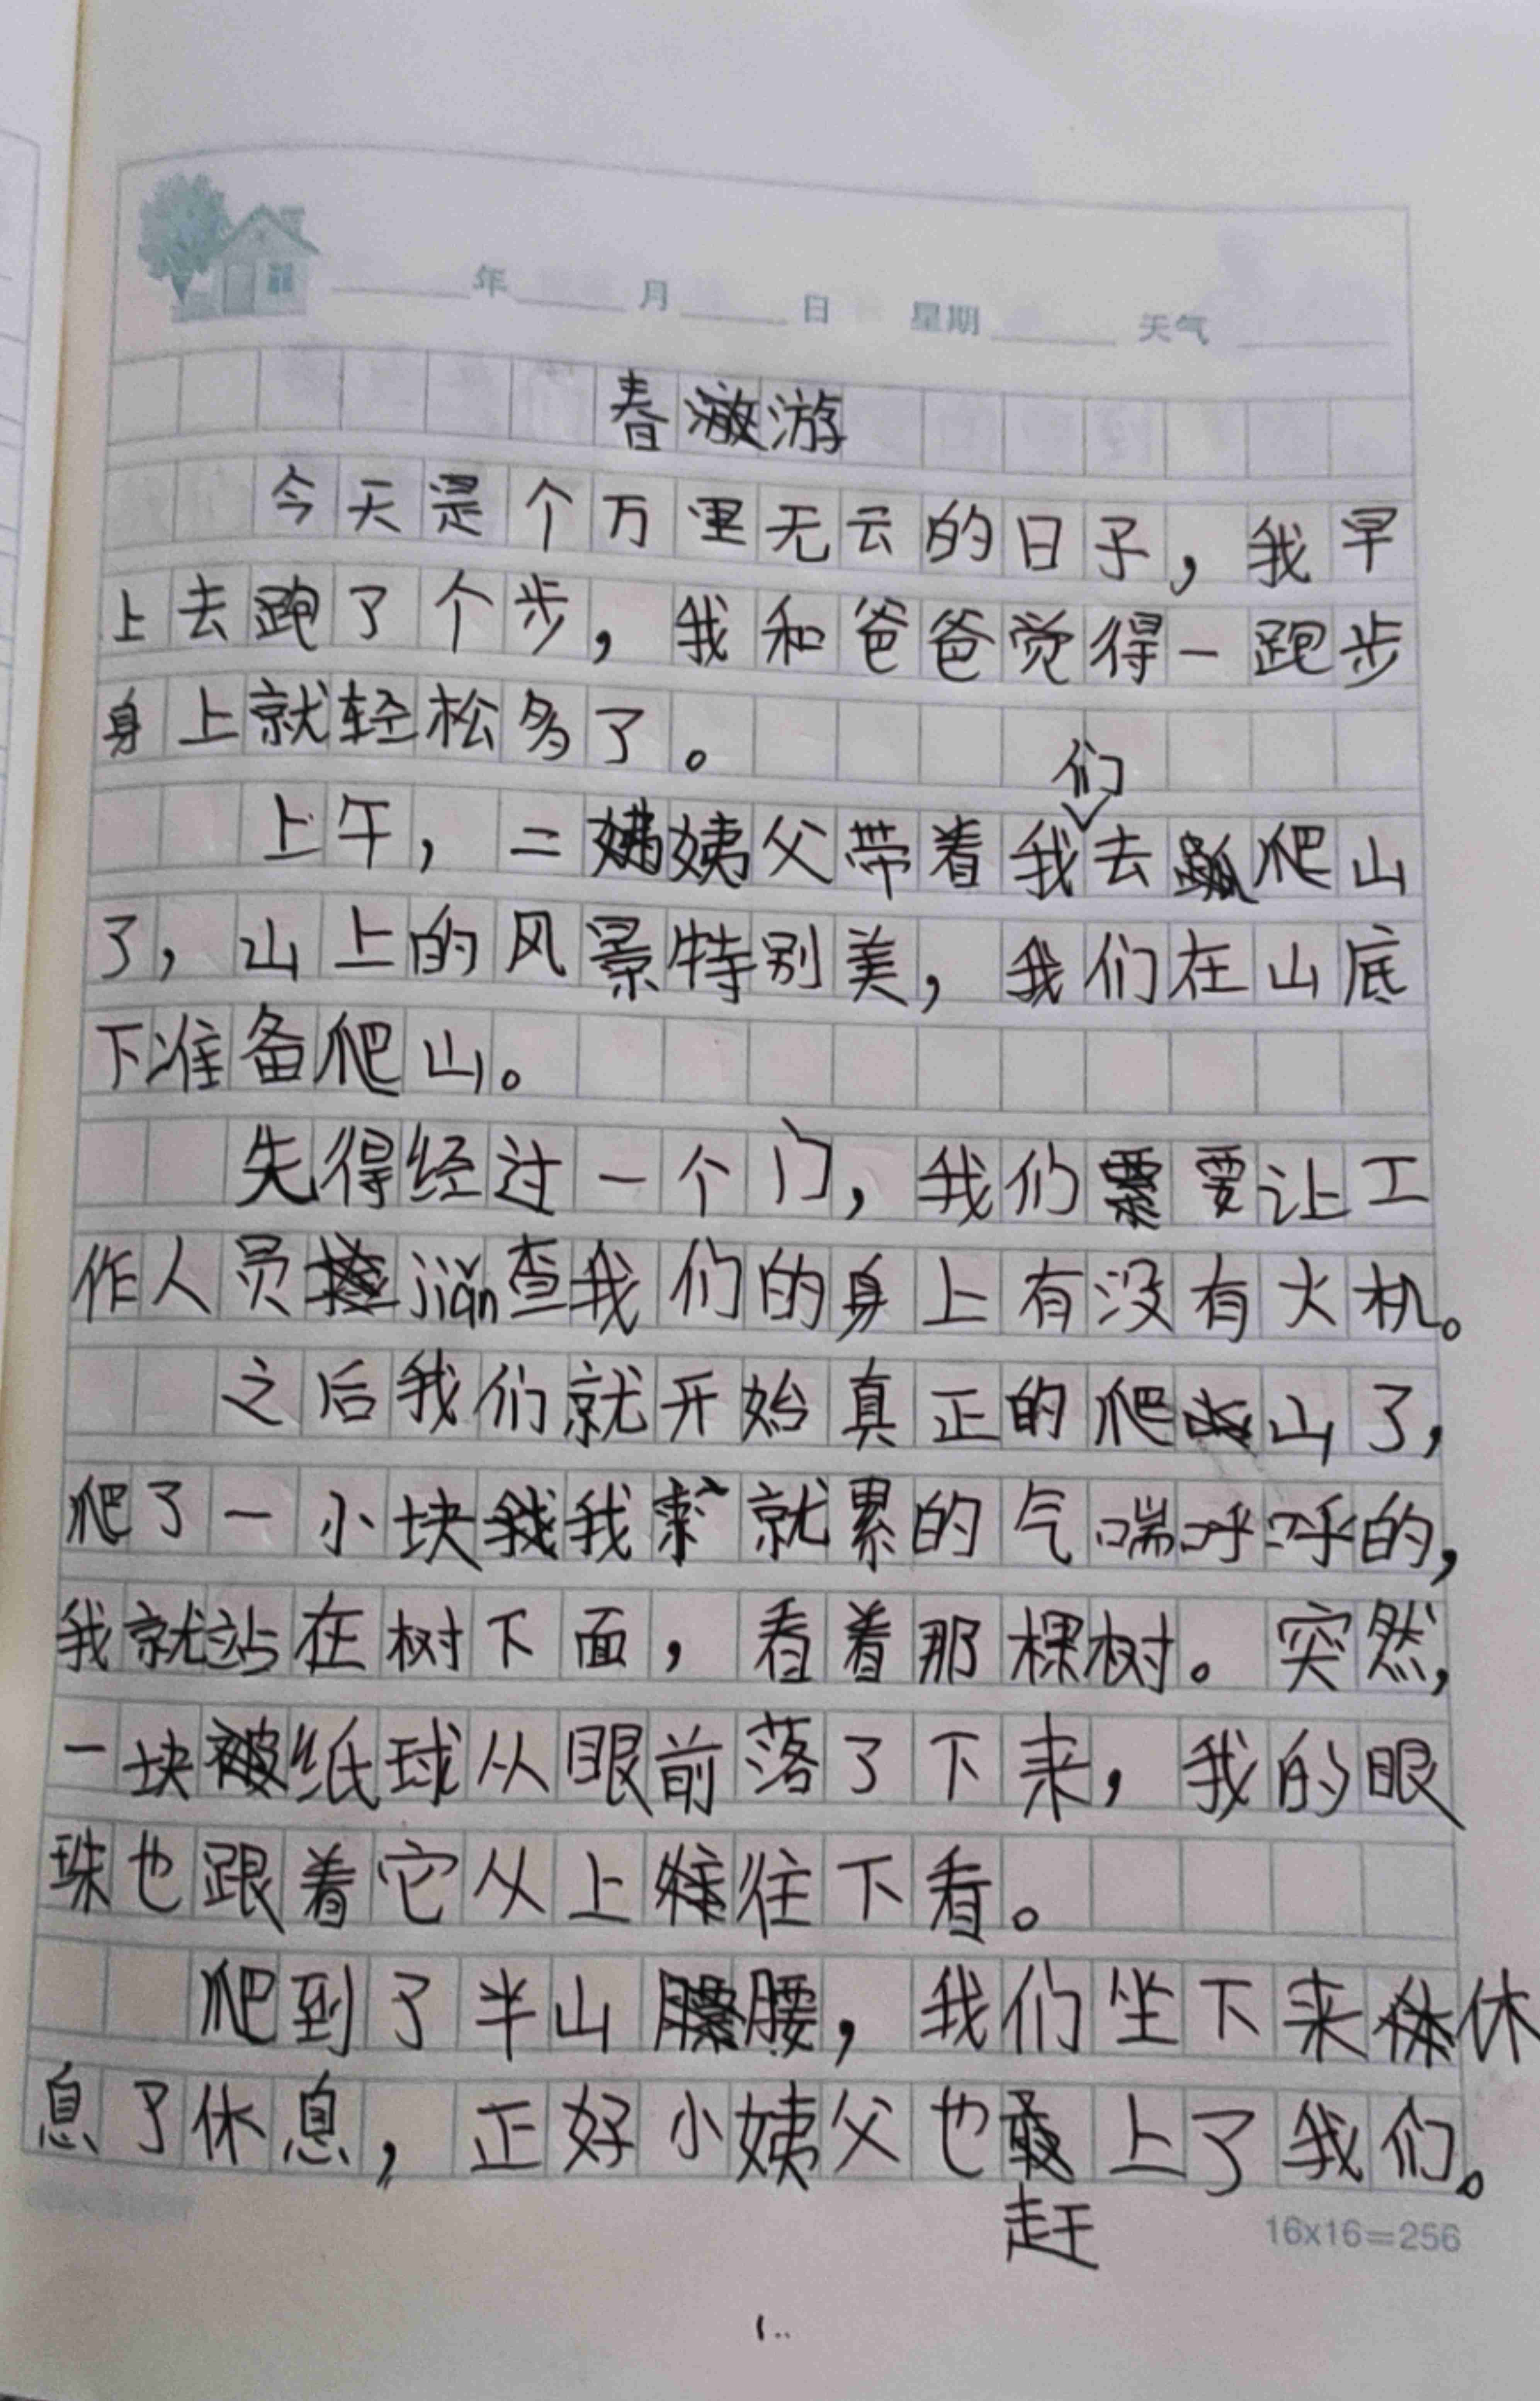 年 月 日 星期 天气
春游
今天是个万里无云的日子，我早
上去跑了个步，我和爸爸觉得一跑步
身上就轻松多了。
上午，二姨父带着我们去爬山
了，山上的风景特别美，我们在山底
下准备爬山。
先得经过一个门，我们要让工
作人员jiǎn查我们的身上有没有火机。
之后我们就开始真正的爬山了，
爬了一小块我就累的气喘呼呼的，
我就站在树下面，看着那棵树。突然，
一块纸球从眼前落了下来，我的眼
珠也跟着它从上往下看。
爬到了半山腰，我们坐下来休
息了休息，正好小姨父也赶上了我们。
16x16=256